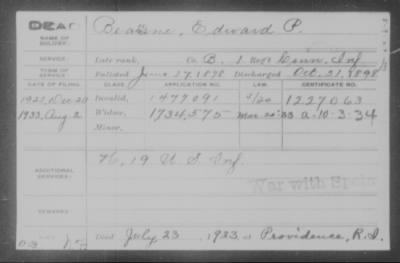 DEAD
NAME OF SOLDIER:
Edward P.
SERVICE:
Late rank, Co. B, 1 Reg't Conn. Inf.
TERM OF SERVICE
Enlisted June 17, 1898 Discharged Oct. 31, 1898
DATE OF FILING. CLASS. APPLICATION NO. LAW. CERTIFICATE NO.
Invalid, 1477091 1227063
1933, Aug 2 Widow, 1734,575 A-10-3-34
Minor,
ADDITIONAL SERVICES:
H, 19 U S Inf.
War with Spain
REMARKS:
Died July 23, 1933, at Providence, R.I.